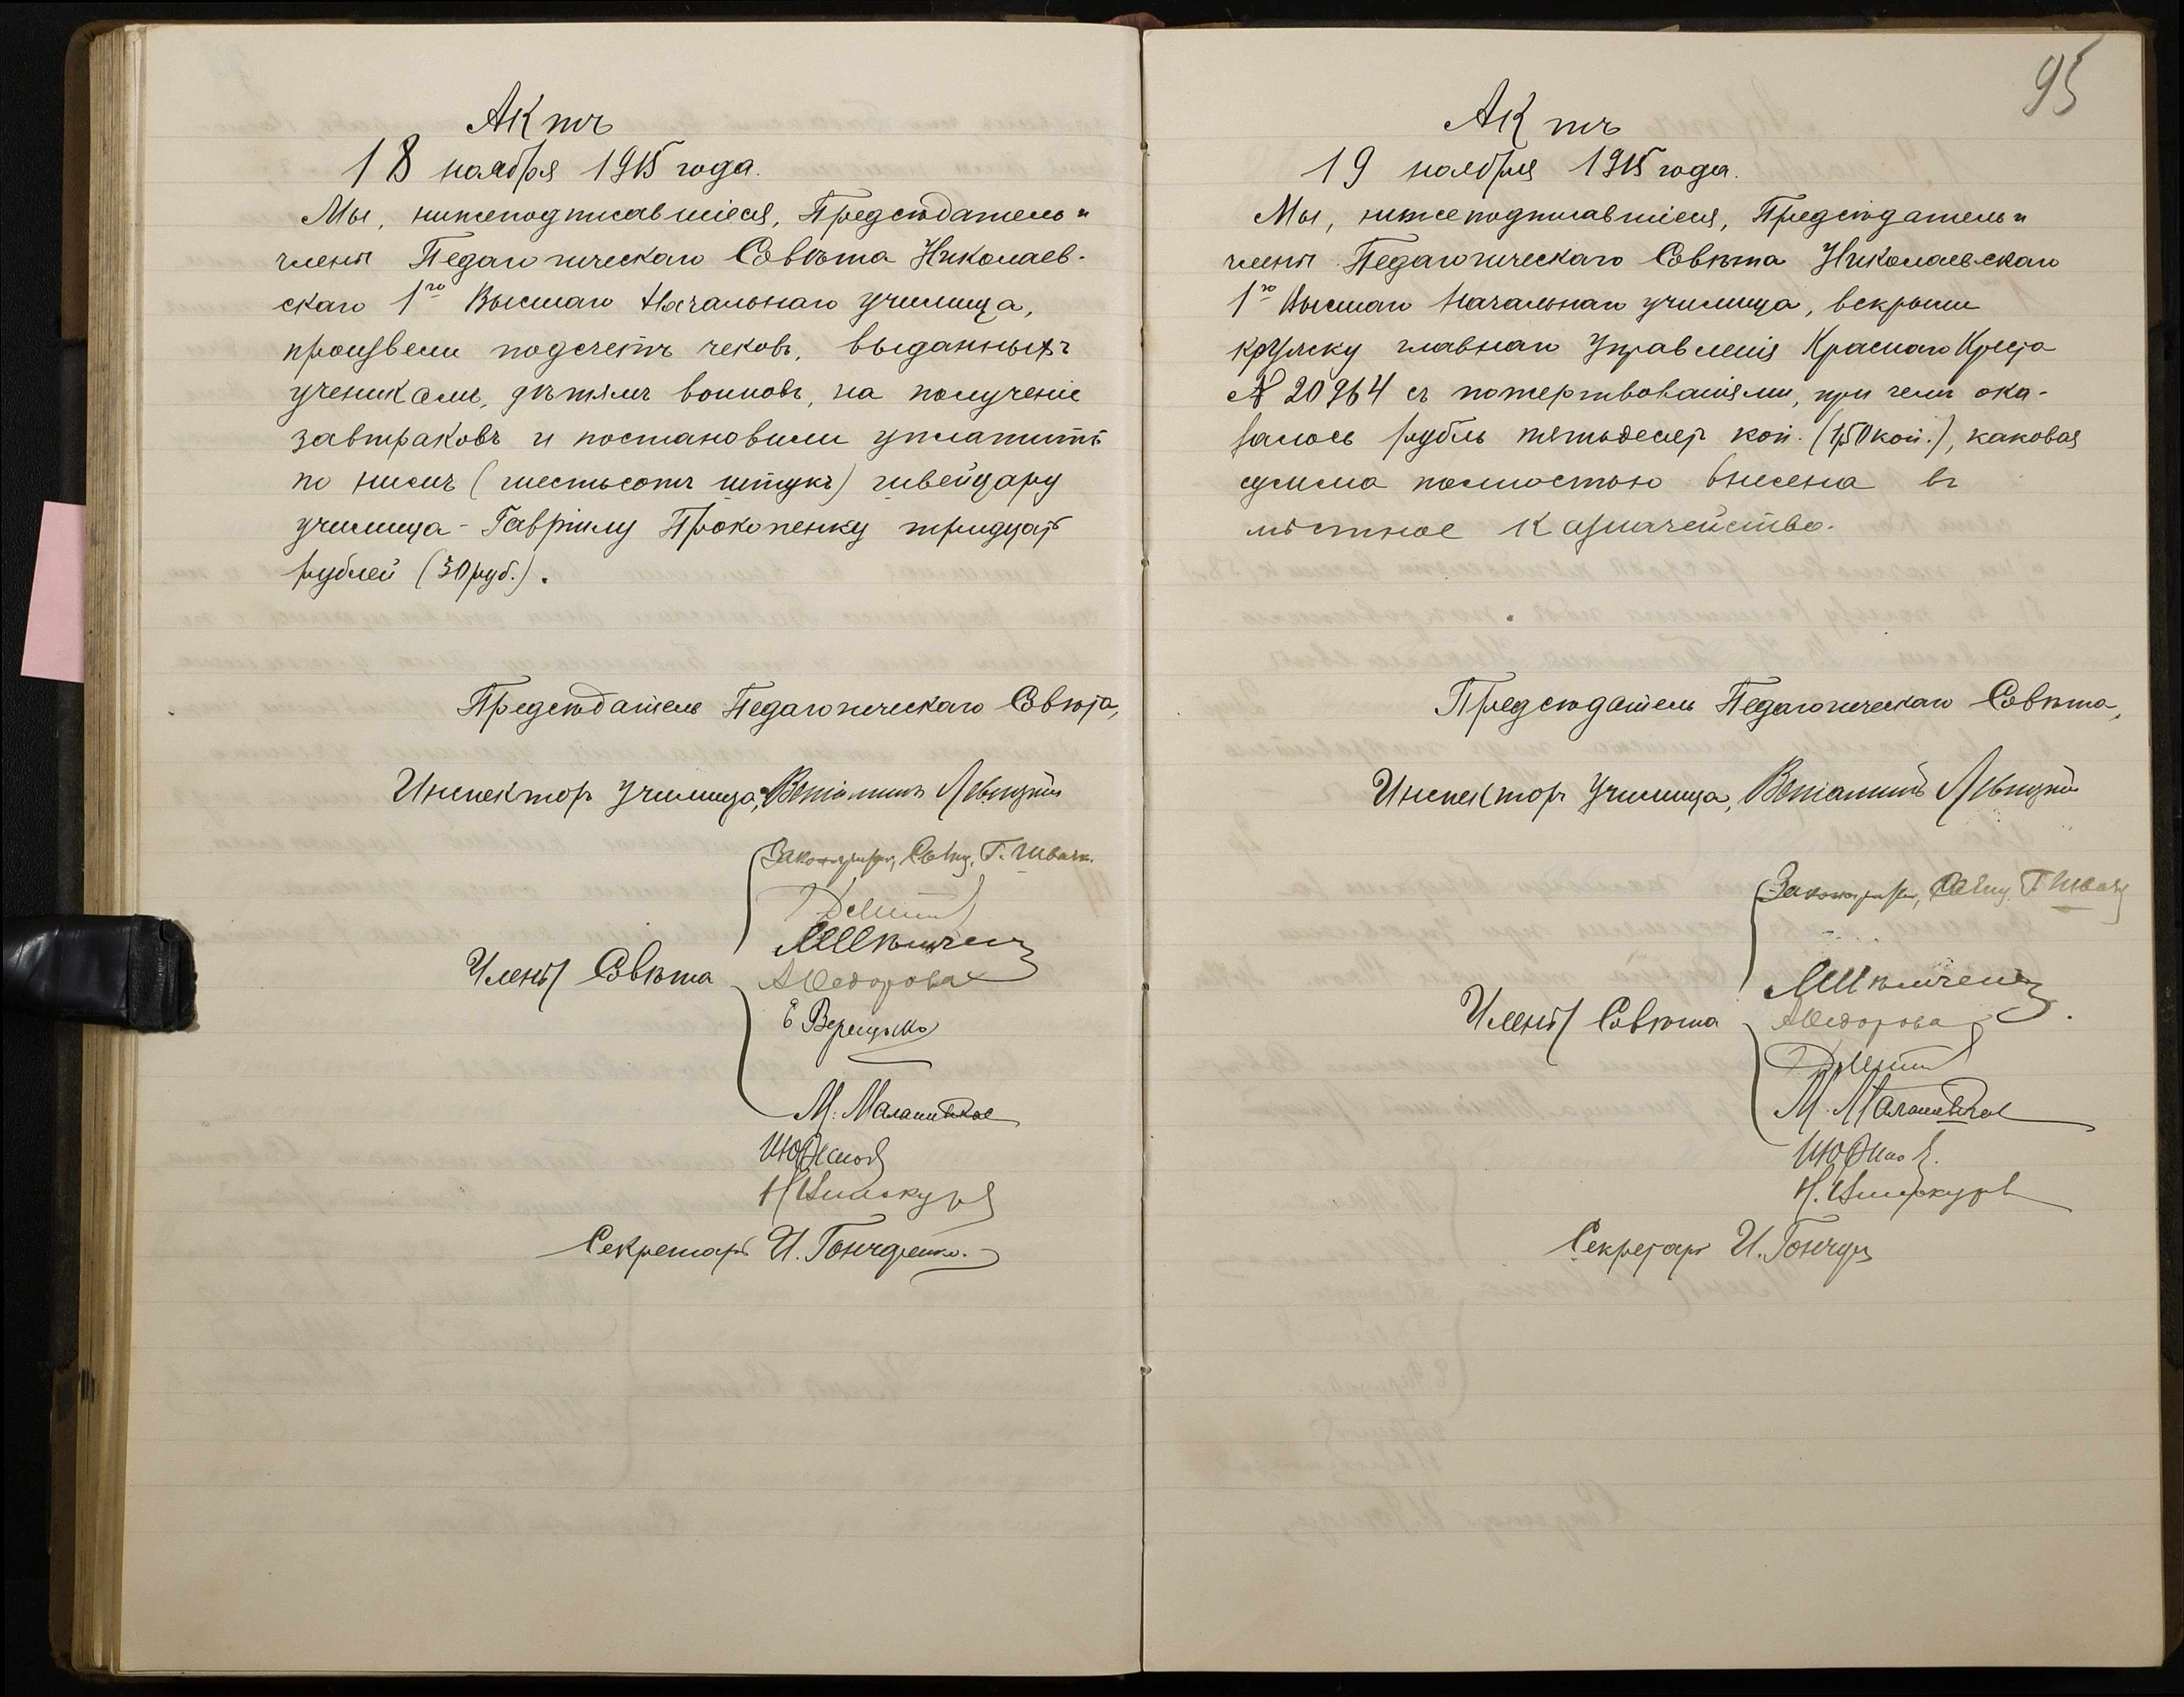 Актъ
18 ноября 1915 года.
Мы, нижеподписавшіеся, Предсѣдатель и
члены Педагогическаго Совѣта Николаев-
скаго 1го Высшаго Начальнаго училища,
произвели подсчетъ чековъ, выданныхъ
ученикамъ, дѣтямъ воиновъ, на полученіе
завтраковъ и постановили уплатить
по нимъ (шестьсотъ штукъ) швейцару
училища - Гавріилу Прокопенку тридцать
рублей (30 руб.).
Предсѣдатель Педагогическаго Совѣта,
Инспекторъ училища, Веніаминъ Левицкій
Законоучитель, Свящ. Г.
Члены Совѣта
А Федорова
М.
Секретарь И. Гончаренко.
95
Актъ
19 ноября 1915 года.
Мы, нижеподписавшіеся, Предсѣдатель и
члены Педагогическаго Совѣта Николаевскаго
1го Высшаго Начальнаго училища, вскрыли
кружку главнаго Управленія Краснаго Креста
№ 20964 съ пожертвованіями, при чемъ ока-
залось рубль пятьдесят коп. (1,50 коп.), каковая
сумма полностью внесена въ
мѣстное Казначейство.
Предсѣдатель Педагогическаго Совѣта,
Инспекторъ Училища, Веніаминъ Левицкій
Законоучитель, Свящ. Г.
Члены Совѣта
А Федорова
М.
Секретарь И. Гончар